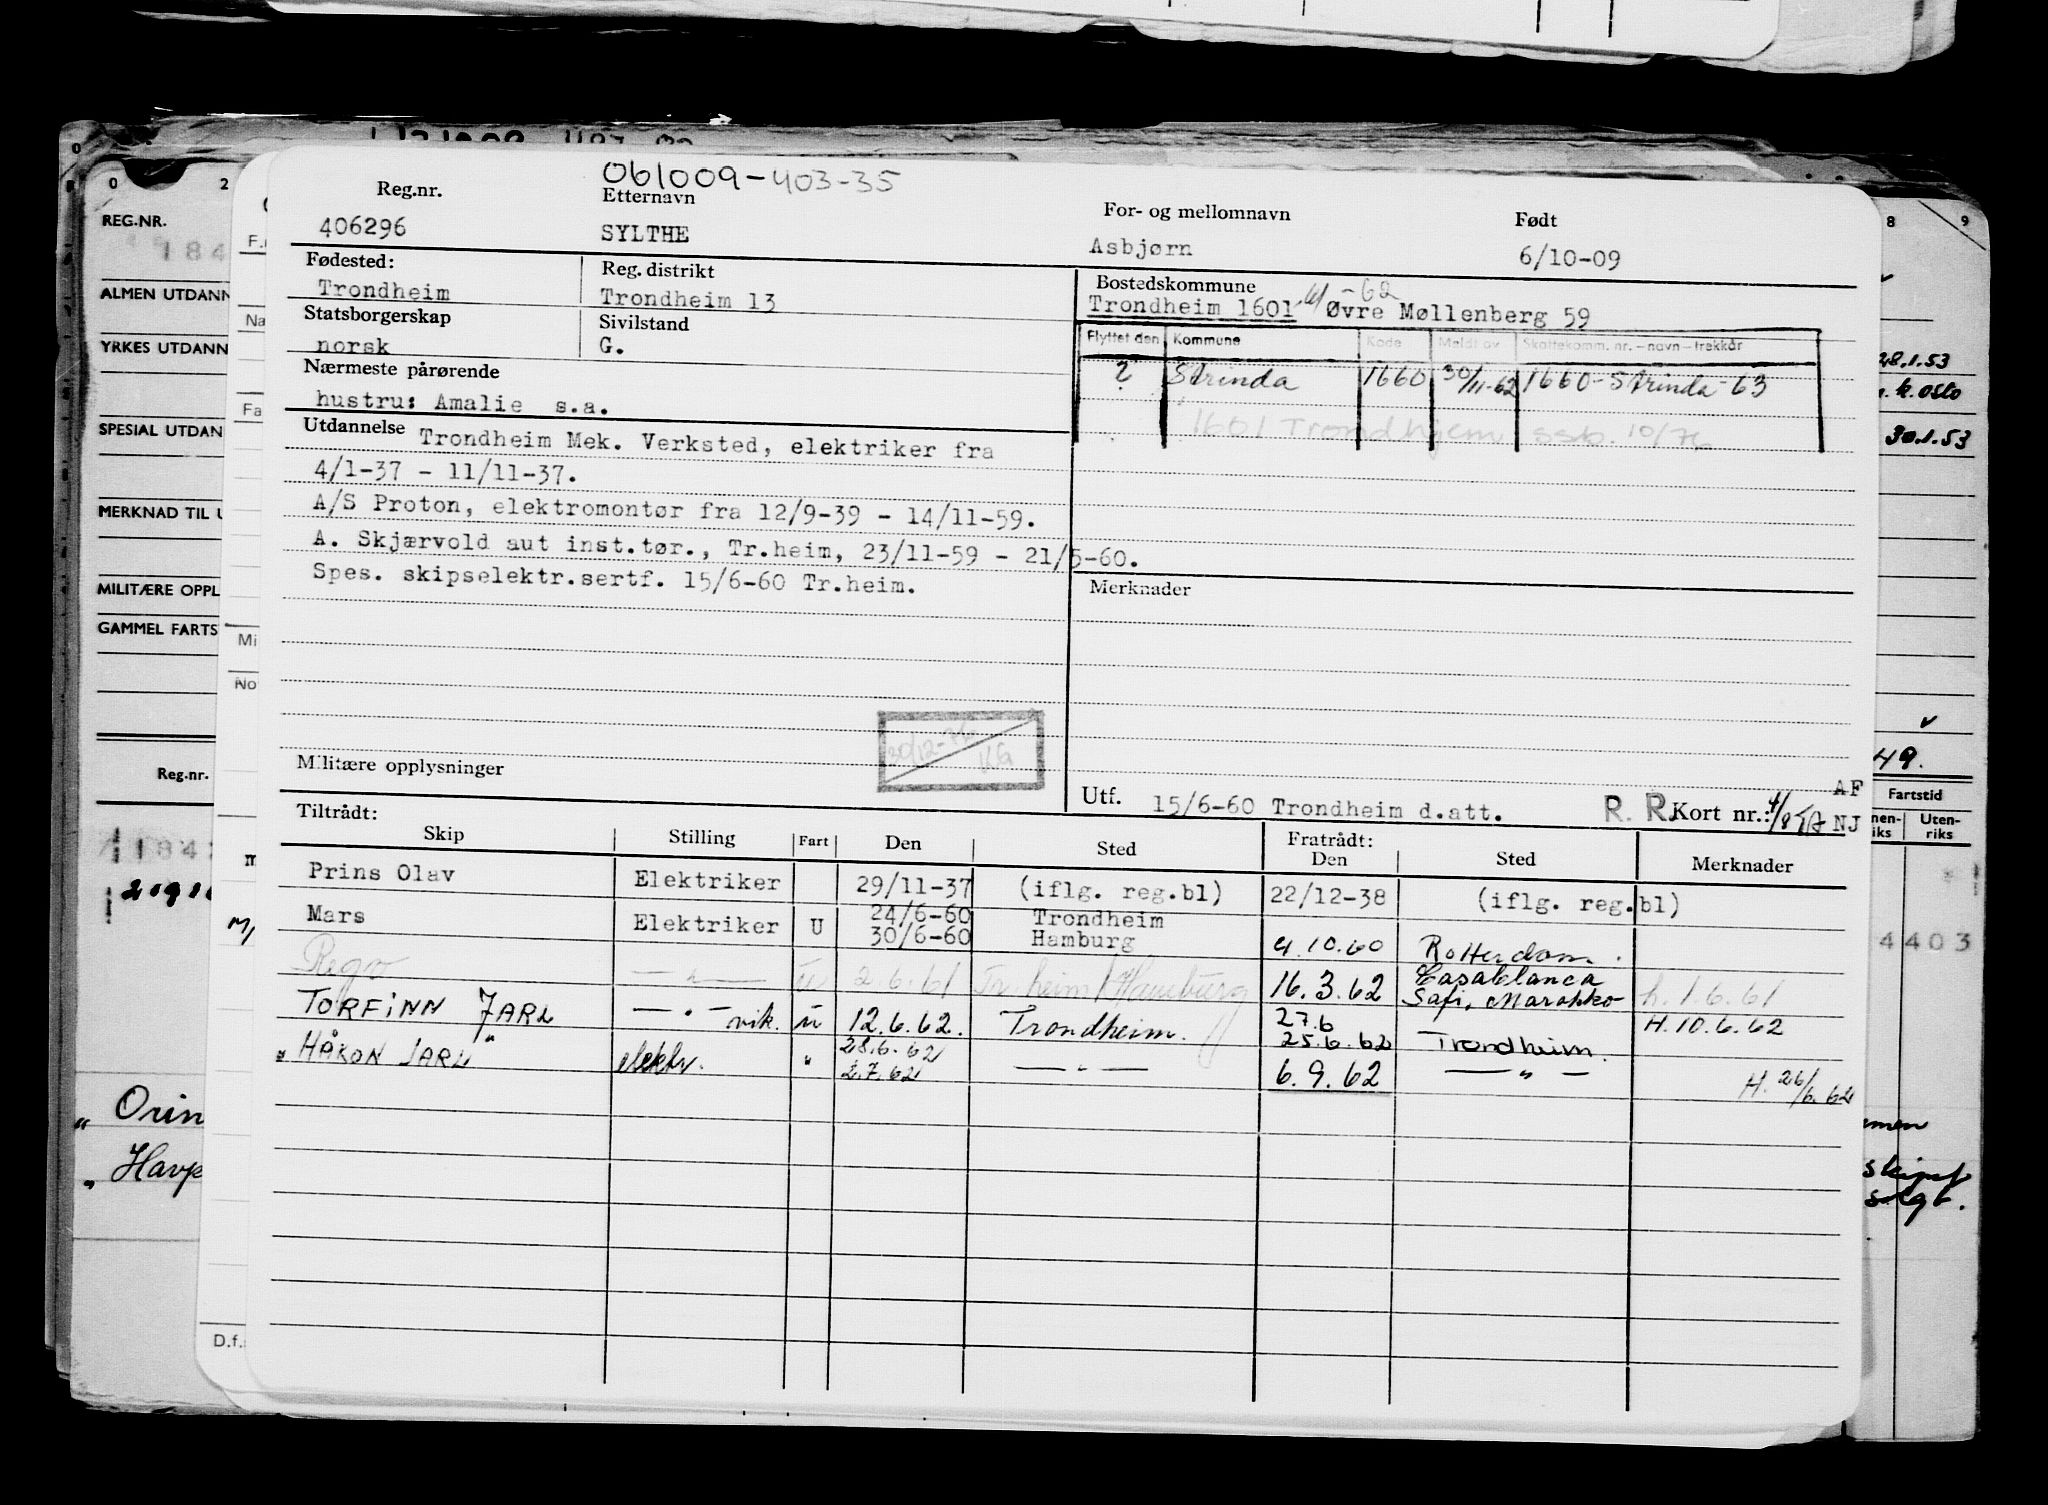 061009-403-35
Reg.nr. Etternavn For- og mellomnavn Født
406296 SYLTHE Asbjørn 6/10-09
Fødested: Reg. distrikt Bostedskommune
Trondheim Trondheim 13 Trondheim 1601 Øvre Møllenberg 59
Statsborgerskap Sivilstand
norsk G.
Flyttet den Kommune Kode Meldt av Skattekomm. nr. - navn - trekkår
? Strinda 1660 30/11-62 1660-Strinda-63
1601 Trondhjem ssb. 10/76
Nærmeste pårørende
hustru: Amalie s.a.
Utdannelse Trondheim Mek. Verksted, elektriker fra
4/1-37 - 11/11-37.
A/S Proton, elektromontør fra 12/9-39 - 14/11-59.
A. Skjærvold aut inst.tør., Tr.heim, 23/11-59 - 21/5-60.
Spes. skipselektr.sertf. 15/6-60 Tr.heim.
Merknader
20/12-76 KG
Militære opplysninger
Utf. 15/6-60 Trondheim d.att. R. R. Kort nr.: AF NJ
Tiltrådt: Fratrådt:
Skip Stilling Fart Den Sted Den Sted Merknader
Prins Olav Elektriker 29/11-37 (iflg. reg.bl) 22/12-38 (iflg. reg.bl)
Mars Elektriker U 24/6-60 Trondheim
30/6-60 Hamburg 4.10.60 Rotterdam.
Rego — " — u 2.6.61 Tr.heim/Hamburg 16.3.62 Casablanca
Safi, Marokko h. 1.6.61
TORFINN JARL — " — vik. u 12.6.62. Trondheim. 27.6
25.6.62 Trondheim. H. 10.6.62
" HÅKON JARL" elektr. " 28.6.62
2.7.62 — " — 6.9.62 — " — H. 26/6.62
REG.NR.
ALMEN UTDANN
YRKES UTDANN
SPESIAL UTDAN
MERKNAD TIL U
MILITÆRE OPPL
GAMMEL FARTS
Reg.nr.
D.f.
28.1.53
30.1.53
49.
Fartstid
Uten-
riks
4403